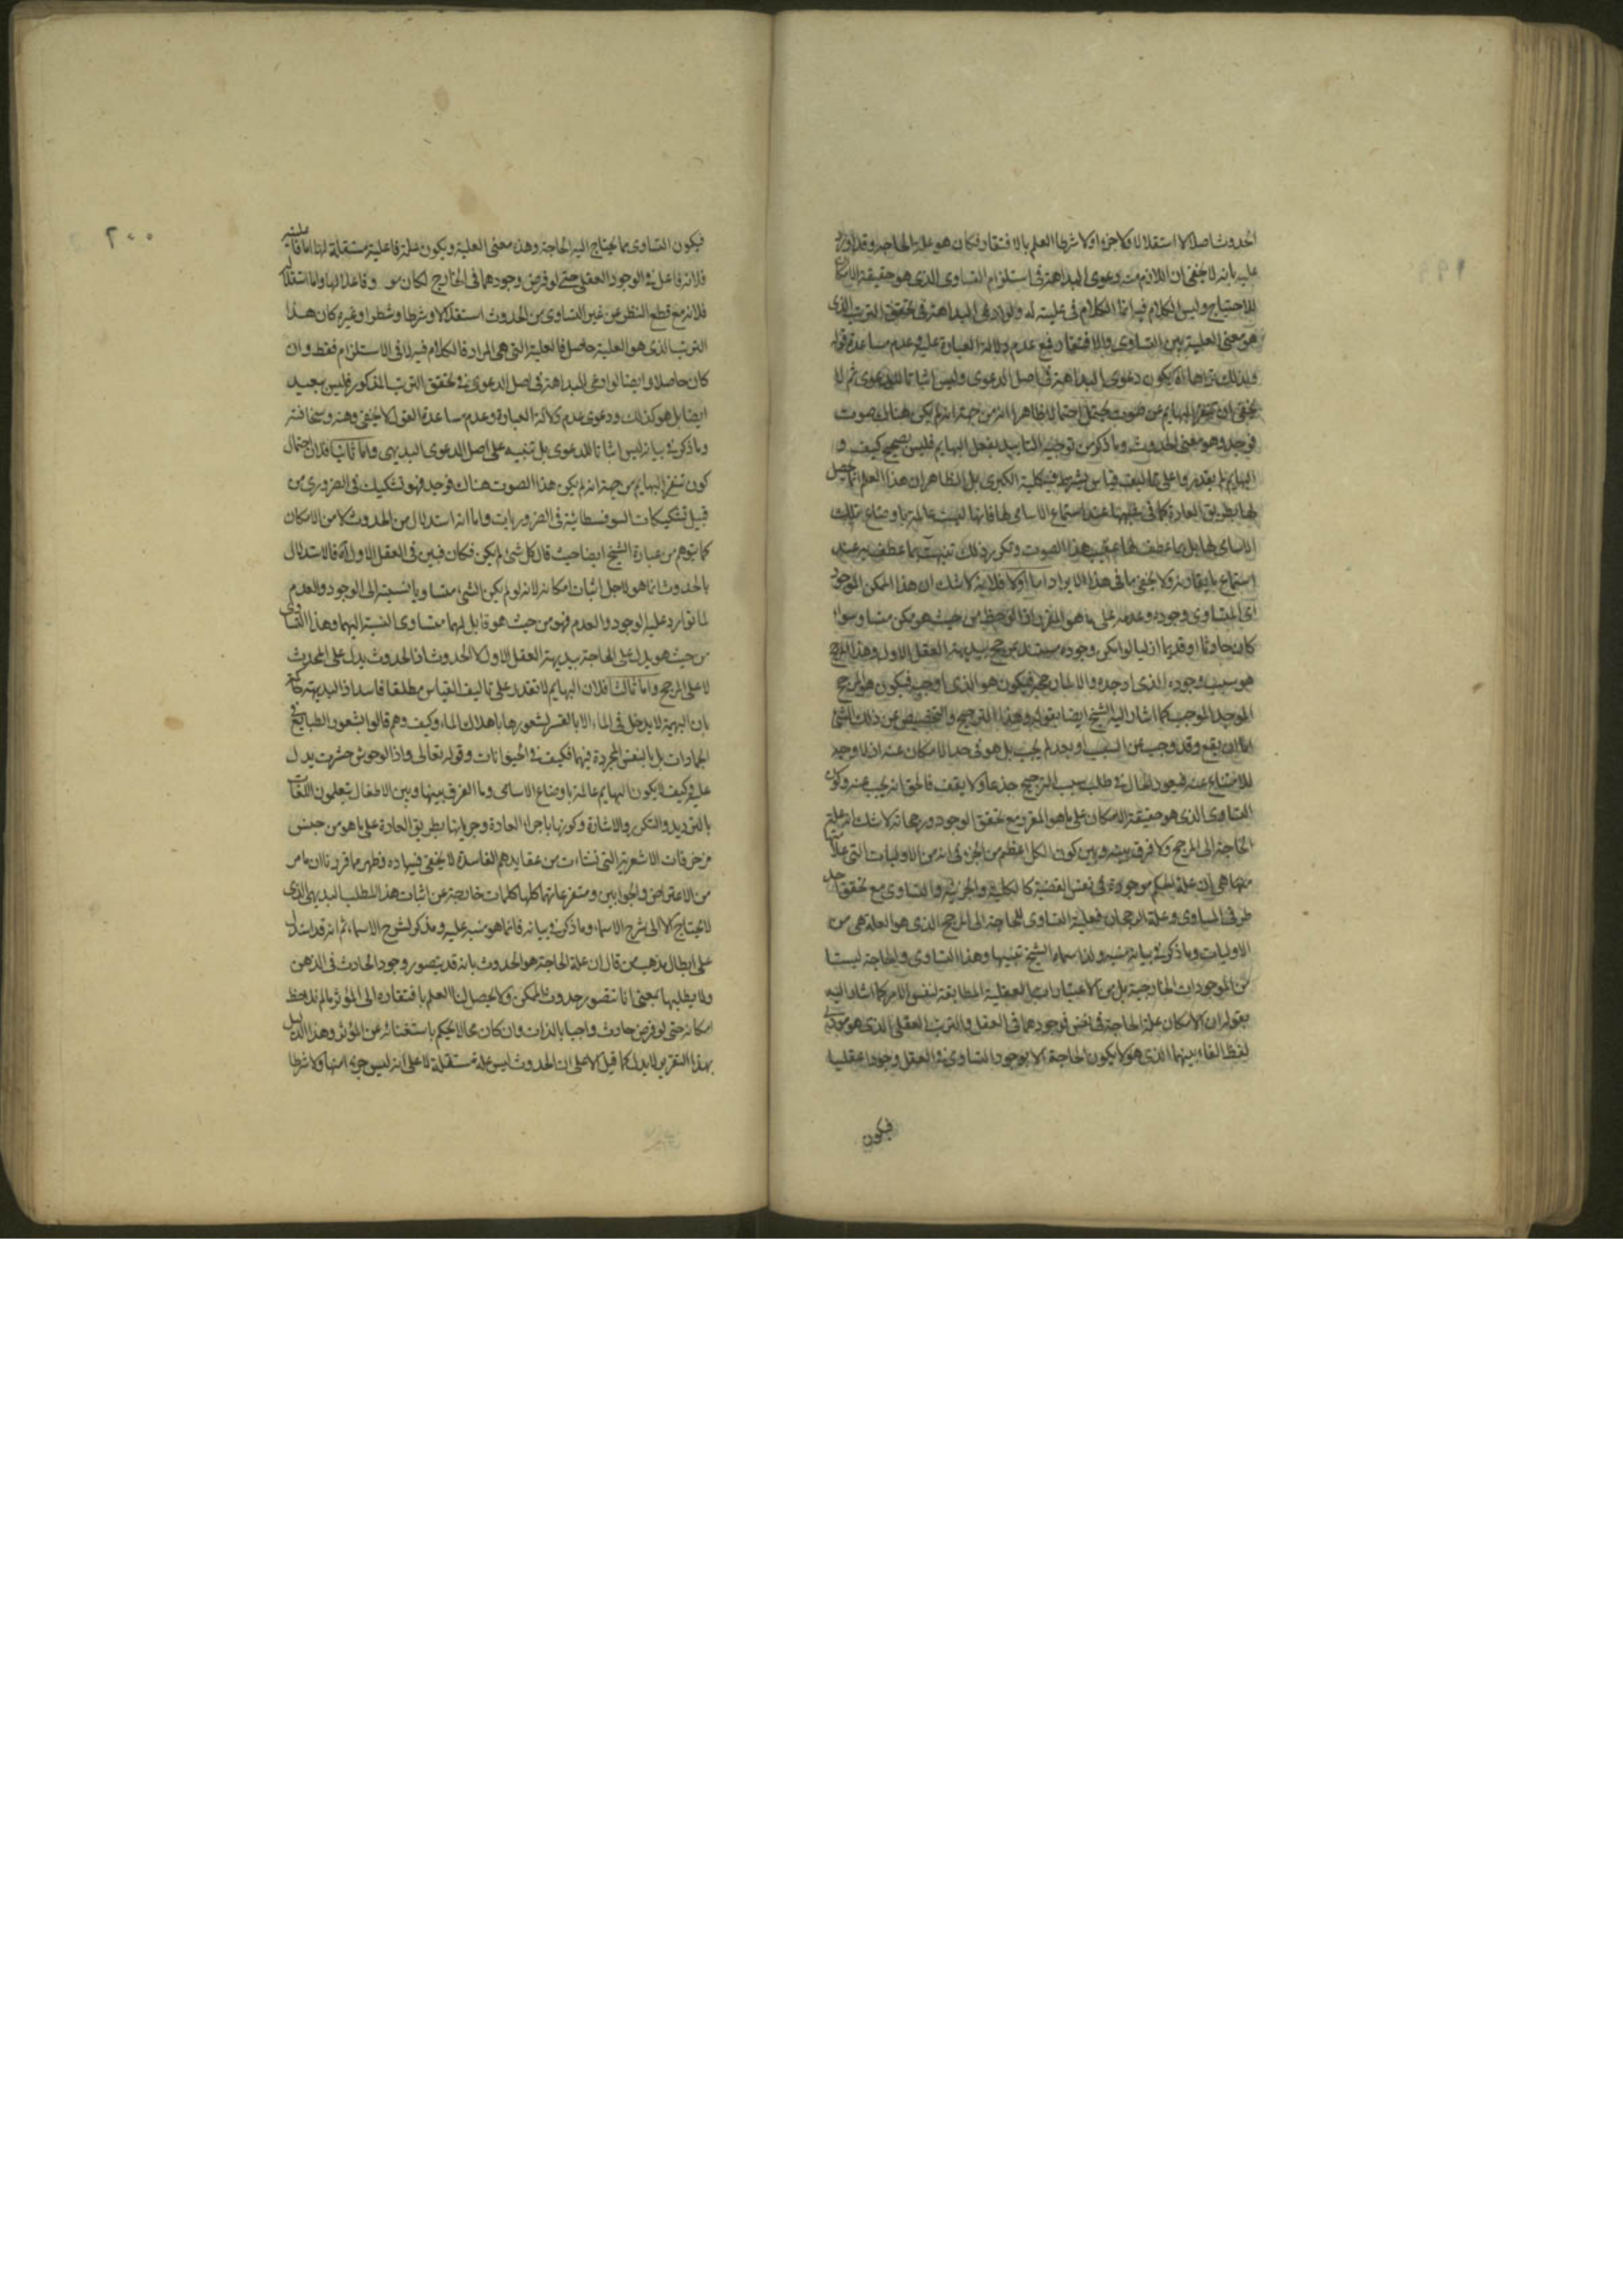 الحدوث اصلا لا استقلالا ولا جزء ولا شرطا العلم بالافتقار فكان هو علة الحاجة وقد اورد
عليه بانه لا يخفى ان اللازم منه دعوى البداهة في استلزام التساوى الذى هو حقيقة الامكان
للاحتياج وليس الكلام فيه انما الكلام في عليته له ولو ادعى البداهة في تحقق الترتب الذى
هو معنى العلية بين التساوى والافتقار عدم دلالة العبارة عليه وعدم مساعدة
يكون دعوى البداهة في اصل الدعوى وليس اثباتا للدعوى ثم لا
يخفى ان تنفر البهايم عن صوت يحتمل احتمالا ظاهرا انه من جهة انه لم يكن هناك صوت
فوجد وهو معنى الحدوث وما ذكر من توجيه التاييد بفعل البهايم فليس بصحيح كيف و
البهايم لم يقدروا على تاليف قياس يشترط فيه كلية الكبرى بل الظاهر ان هذا العلم انما حصل
لها بطريق العادة كما في عند استماع الاسامى لها فانها ليست عالمة باوضاع تلك
الاسامى لها بل هذا الصوت وتكرر ذلك
استماع ما يقارنه ولا يخفى ما في هذا الايراد اما اولا فلانه لا شك ان هذا الممكن الموجود
اى المتساوى وجوده وعدمه على ما هو المقرر اذا لوحظ من حيث هو ممكن متساو سواء
كان حادثا او قديما ازليا لو امكن وجوده مرجح ببديهة العقل الاول وهذا المرجح
هو سبب وجوده الذى اوجده والا لما رجحه فيكون هو الذى اوجبه فيكون هو المرجح
الموجد الموجب كما اشار اليه الشيخ ايضا بقوله وهذا الترجيح والتخصيص عن ذلك الشئ
اما ان يقع وقد وجب عن السبب او بعد لم يجب بل هو في حد الامكان عنه اذ لا وجه
للامتناع عنه فيعود الحال في طلب سبب الترجيح جذعا ولا يقف فالحق انه يجب عنه وكون
التساوى الذى هو حقيقة الامكان على ما هو المقرر مع تحقق الوجود ورجحانه لا شك انه علة
الحاجة الى المرجح ولا فرق بينه وبين كون الكل اعظم من الجزء في انه من الاوليات التى
هى ان علة الحكم موجودة في نفس القضية كالكلية والجزئية والتساوى مع تحقق احد
طرفى المساوى وعلة الرجحان فعلية التساوى للحاجة الى المرجح الذى هو العلة هى من
الاوليات وما ذكر في بيانه منبه ولذا سماه الشيخ تنبيها وهذا التساوى والحاجة ليستا
من الموجودات الخارجية بل من الاعتبارات العقلية المطابقة لنفس الامر كما اشار اليه
بقوله ان الامكان علة الحاجة في نفس وجودهما في العقل والترتب العقلى الذى هو
لفظ الفاء بينهما الذى هو لا يكون الحاجة الا بوجود التساوى في العقل وجودا عقليا
فيكون
٢٠٠
فيكون التساوى مما يحتاج اليه الحاجة وهذا معنى العلية ويكون علة فاعلية مستقلة لها اما فاعليته
فلانه فاعل في الوجود العقلى حتى لو فرض وجودهما في الخارج لكان وفاعلا لها واما استقلاله
فلانه مع قطع النظر عن غير التساوى من الحدوث استقلالا وشرطا وشطرا وغيره كان هذا
الترتب الذى هو العلية حاصلا فالعلية التى هى المراد فالكلام فيه لا في الاستلزام فقط وان
كان حاصلا وايضا لو ادعى البداهة في اصل الدعوى في تحقق الترتب المذكور فليس ببعيد
ايضا بل هو كذلك ودعوى عدم دلالة العبارة وعدم مساعدة القول لا يخفى وهنه وسخافته
وما ذكر في بيانه ليس اثباتا للدعوى بل تنبيه على اصل الدعوى البديهى واما ثانيا فلان احتمال
كون تنفر البهايم من جهة انه لم يكن هذا الصوت هناك فوجد فهو تشكيك في الضرورى من
قبيل تشكيكات السوفسطائية في الضروريات واما انه استدلال من الحدوث لا من الامكان
كما يتوهم من عبارة الشيخ ايضا حيث قال كل شئ لم يكن فكان فبين في العقل الاول انه فالاستدلال
بالحدوث انما هو لاجل اثبات امكانه لانه لو لم يكن الشئ متساويا بالنسبة الى الوجود والعدم
لما توارد عليه الوجود والعدم فهو من حيث هو قابل لهما متساوى النسبة اليهما وهذا التساوى
من حيث هو يدل على الحاجة ببديهة العقل الاول لا الحدوث اذ الحدوث يدل على المحدث
لا على المرجح واما ثالثا فلان البهايم لا تقدر على تاليف القياس مطلقا فاسد اذ البديهة حاكمة
بان البهيمة لا يدخل في الماء الا بالقسر لشعورها باهلاك الماء وكيف وهم قالوا بشعور الطبايع في
الجمادات بل بالنفس المجردة فيها فكيف في الحيوانات وقوله تعالى واذا الوحوش حشرت يدل
عليه وكيف لا يكون البهايم عالمة باوضاع الاسامى وما الفرق بينها وبين الاطفال يتعلمون اللغات
بالترديد والتكرير والاشارة وكونها باجراء العادة وجريانها بطريق العادة على ما هو من جنس
مزخرفات الاشعرية التى نشاءت من عقايدهم الفاسدة لا يخفى فساده فظهر مما قررنا ان ما مر
من الاعتراض والجوابين ومتفرعاتها كلها كلمات خارجة عن اثبات هذا المطلب البديهى الذى
لا يحتاج الا الى شرح الاسماء وما ذكر في بيانه فانما هو منبه عليه ومذكر لشرح الاسماء ثم انه قد استدل
على ابطال مذهب من قال ان علة الحاجة هو الحدوث بانه قد يتصور وجود الحادث في الذهن
ولا يطلبها بمعنى انا نتصور حدوث الممكن ولا يحصل لنا العلم بافتقاره الى المؤثر ما لم نلاحظ
امكانه حتى لو فرض حادث واجبا بالذات وان كان محالا يحكم باستغنائه عن المؤثر وهذا الدليل
بهذا التقرير لا يدل كما قيل الا على ان الحدوث ليس علة مستقلة لا على انه ليس جزء منها ولا شرطا